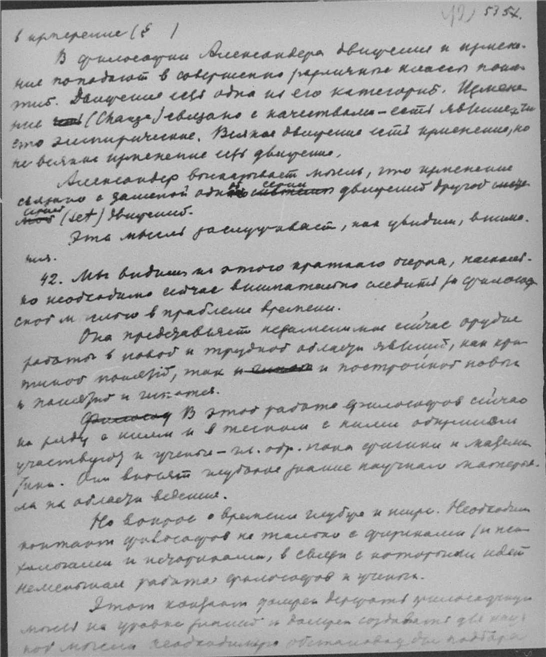 в изменение (§ )
53 54.
В философии Александера движение и измене-
ние попадают в совершенно различные классы поня-
тий. Движение есть одна из его категорий. Измене-
ние (Change) связано с качествами – есть явление чи-
сто эмпирическое. Всякое движение есть изменение, но
не всякое изменение есть движение.
Александер высказывает мысль, что изменение
связано с заменой одной серии движений другой
серией (set) движений.
Эта мысль заслуживает, как увидим, внима-
ния.
42. Мы видим из этого краткого очерка, насколь-
ко необходимо сейчас внимательно следить за философ-
ской мыслью в проблеме времени.
Она представляет незаменимое сейчас орудие
работы в новой и трудной области явлений, как кри-
тикой понятий, так и постройкой новых
и понятий и гипотез.
В этой работе философов сейчас
на ряду с ними и в тесном с ними общении
участвуют и ученые – гл. обр. пока физики и матема-
тики. Они вносят глубокое знание научного материа-
ла из области ведения.
Но вопрос о времени глубже и шире. Необходим
контакт философов не только с физиками, но и пси-
хологами и историками, в связи с которыми идет
немалая работа философов и ученых.
Этот контакт должен держать философскую
мысль на уровне знаний и должен создавать для науч-
ной мысли необходимую обстановку для